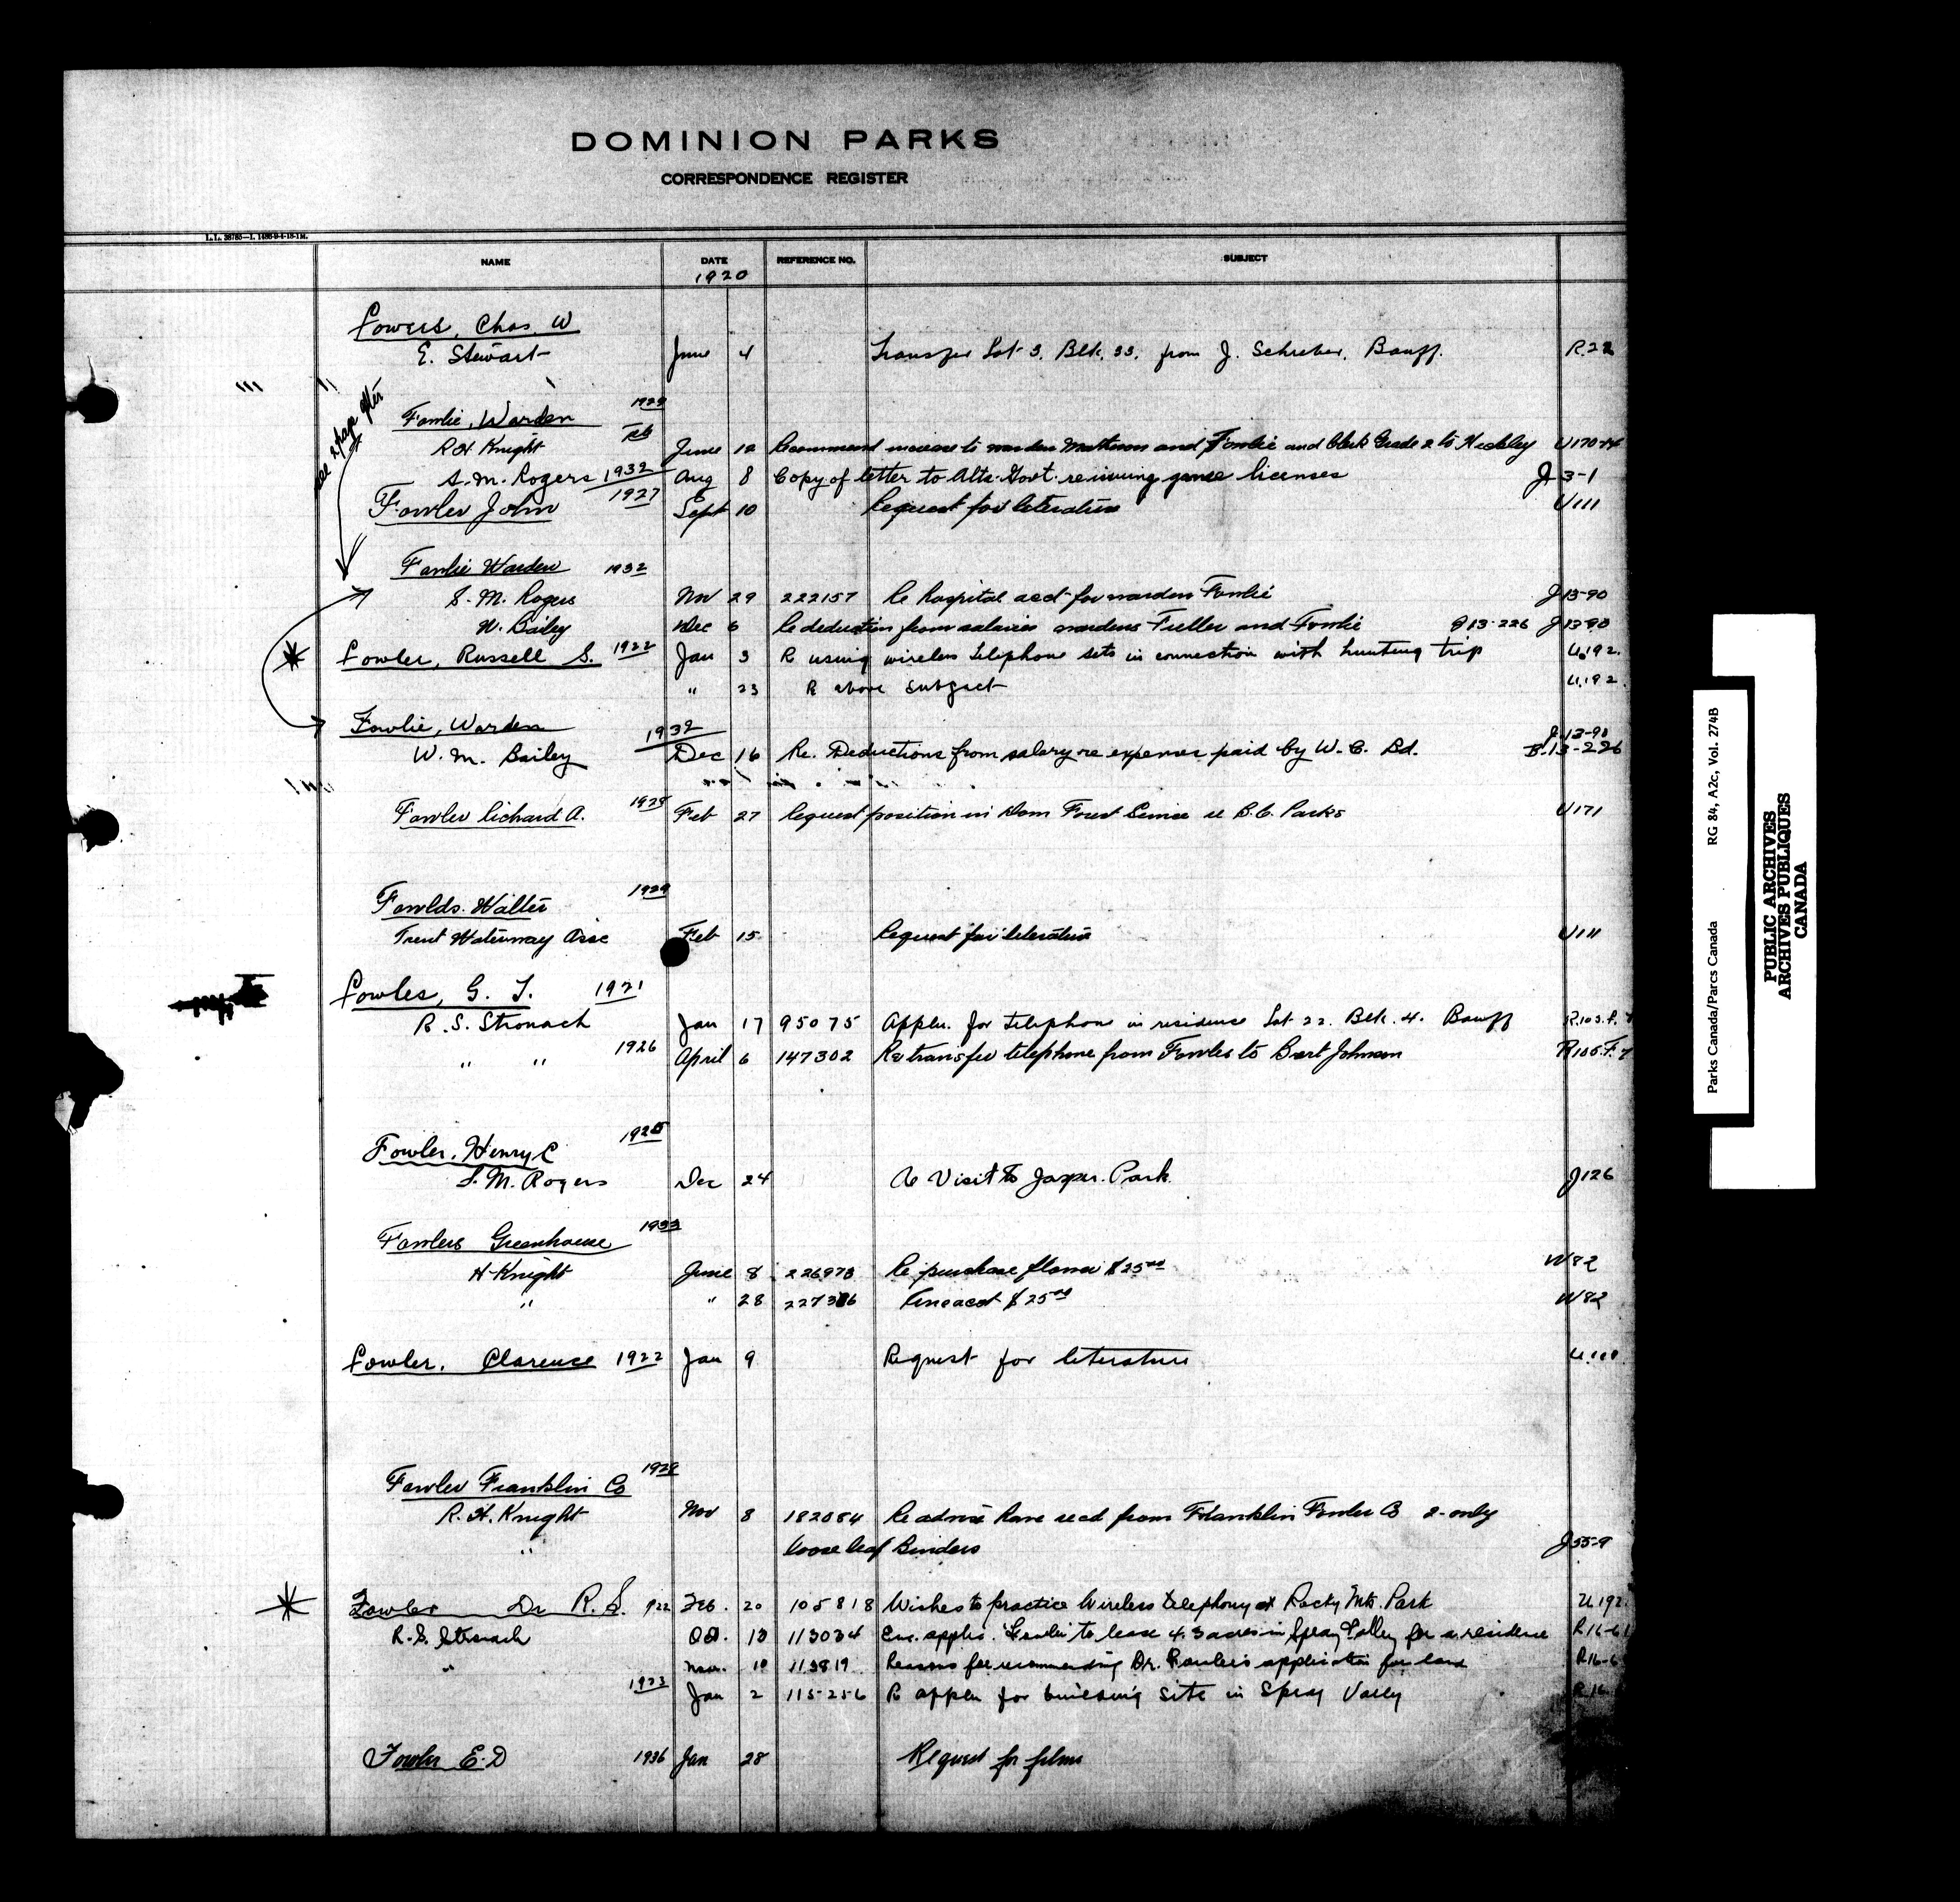 DOMINION PARKS
CORRESPONDENCE REGISTER
NAME DATE REFERENCE NO. SUBJECT
1920
Fowers, Chas. W
E. Stewart June 4 Transfer Lot 3. Blk. 33. from J. Schreber. Banff. R.22
see 2 page after
Fowlie, Warden 1929
R H Knight Feb June 12 Recommend increase to warden and Fowlie and Clerk Grade 2 to U170-14
S. M. Rogers 1932 Aug 8 Copy of letter to Alta. Govt. game licenses J 3-1
Fowler John 1927 Sept 10 Request for literature U111
Fowlie Warden 1932
S. M. Rogers Nov 29 222157 Re hospital acct for warden Fowlie J13-90
W. Bailey Dec 6 Re deduction from salaries wardens Fuller and Fowlie B13-226 J13-90
Fowler, Russell S. 1922 Jan 3 R using wireless telephone sets in connection with hunting trip U.192.
" 23 R above subject U.192.
Fowlie, Warden 1932 J.13-90
W. M. Bailey Dec 16 Re. Deductions from salary re expenses paid by W. C. Bd. B.13-226
Fowler Richard A. Feb 27 Request position in Dom Forest Service re B.C. Parks U171
Fowlds. Walter 1929
Trent Waterway Assc Feb 15 Request for literature U111
Fowles, G. T. 1921
R. S. Stronach Jan 17 95075 Appln. for telephone in residence Lot 22. Blk. 4. Banff
" " 1926 April 6 147302 Re transfer telephone from Fowles to Bert Johnson
Fowler, Henry C
S. M. Rogers Dec 24 Re Visit to Jasper Park J126
Fowlers Greenhouse 1933
H Knight June 8 226973 Re purchase flowers $25.00 W82
" " 28 $25.00 W82
Fowler, Clarence 1922 Jan 9 Request for literature
Fowler Franklin Co
R. H. Knight Nov 8 182084 Re advise have recd from Franklin Fowler Co 2-only
" loose leaf Binders J55-9
Fowler Dr R. S. 1922 Feb. 20 105818 Wishes to practice Wireless telephony at Rocky Mts. Park U.192.
R. S. Stronach Oct. 13 113034 Enc. applic. Fowler to lease 4.3 acres in Spray Valley for a residence
" Nov. 10 113819 Reasons for recommending Dr. Fowler's application for land
1923 Jan 2 115256 R appln for building site in Spray Valley
Fowler E. D 1936 Jan 28 Request for films
RG 84, A2c, Vol. 274B
Parks Canada/Parcs Canada
PUBLIC ARCHIVES
ARCHIVES PUBLIQUES
CANADA